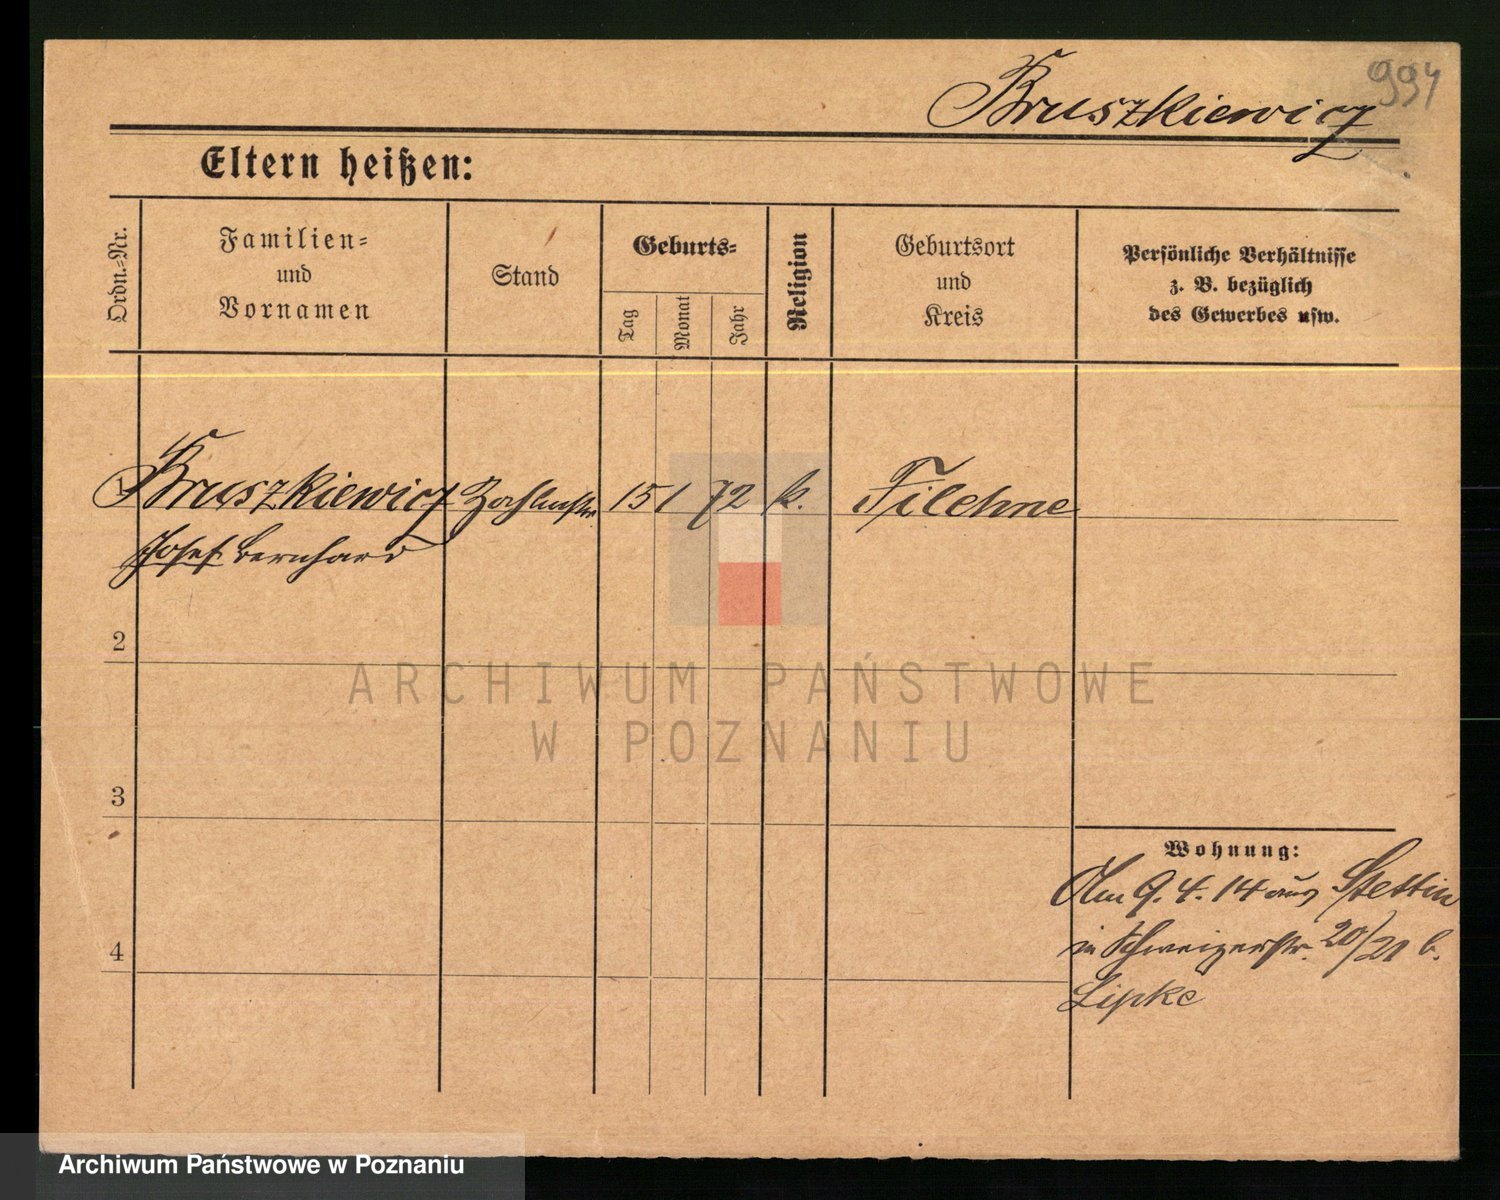 994
Bruszkiewicz
Eltern heißen:
Ordn.-Nr.
Familien-
und
Vornamen
Stand
Geburts-
Tag
Monat
Jahr
Religion
Geburtsort
und
Kreis
Persönliche Verhältnisse
z. B. bezüglich
des Gewerbes usw.
1 Bruszkiewicz 15 1 72 k. Filehne
Josef Bernhard
2
3
4
Wohnung:
Am 9.4.14 aus Stettin
in Schweizerstr. 20/21 b.
Lipke
ARCHIWUM PAŃSTWOWE
W POZNANIU
Archiwum Państwowe w Poznaniu